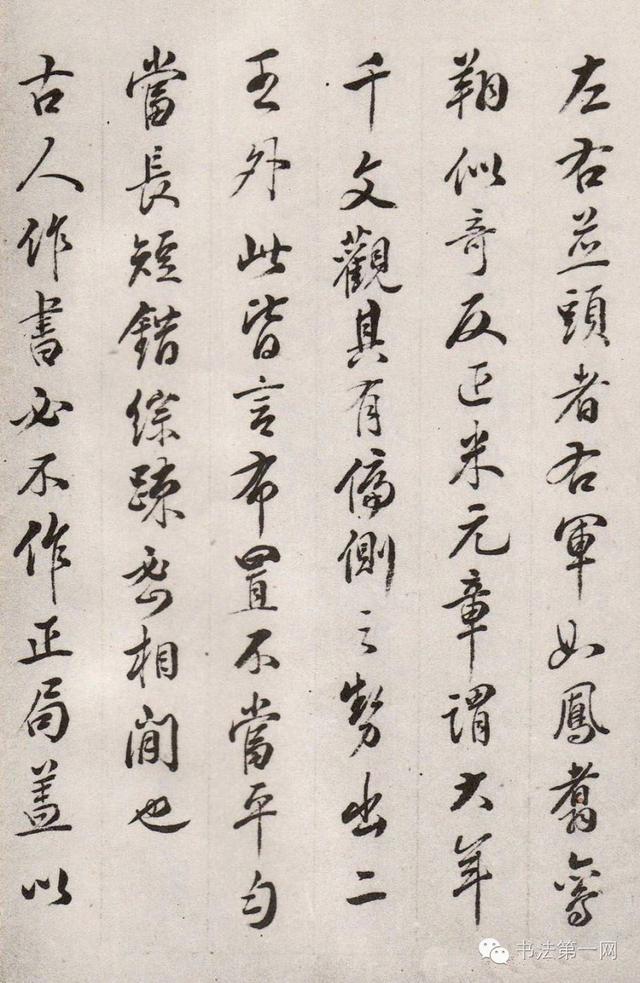 左右並頭者右軍如鳳翥鸞
翔似奇反正米元章謂大年
千文觀其有偏側之勢出二
王外此皆言布置不當平勻
當長短錯綜疎密相間也
古人作書必不作正局蓋以
书法第一网